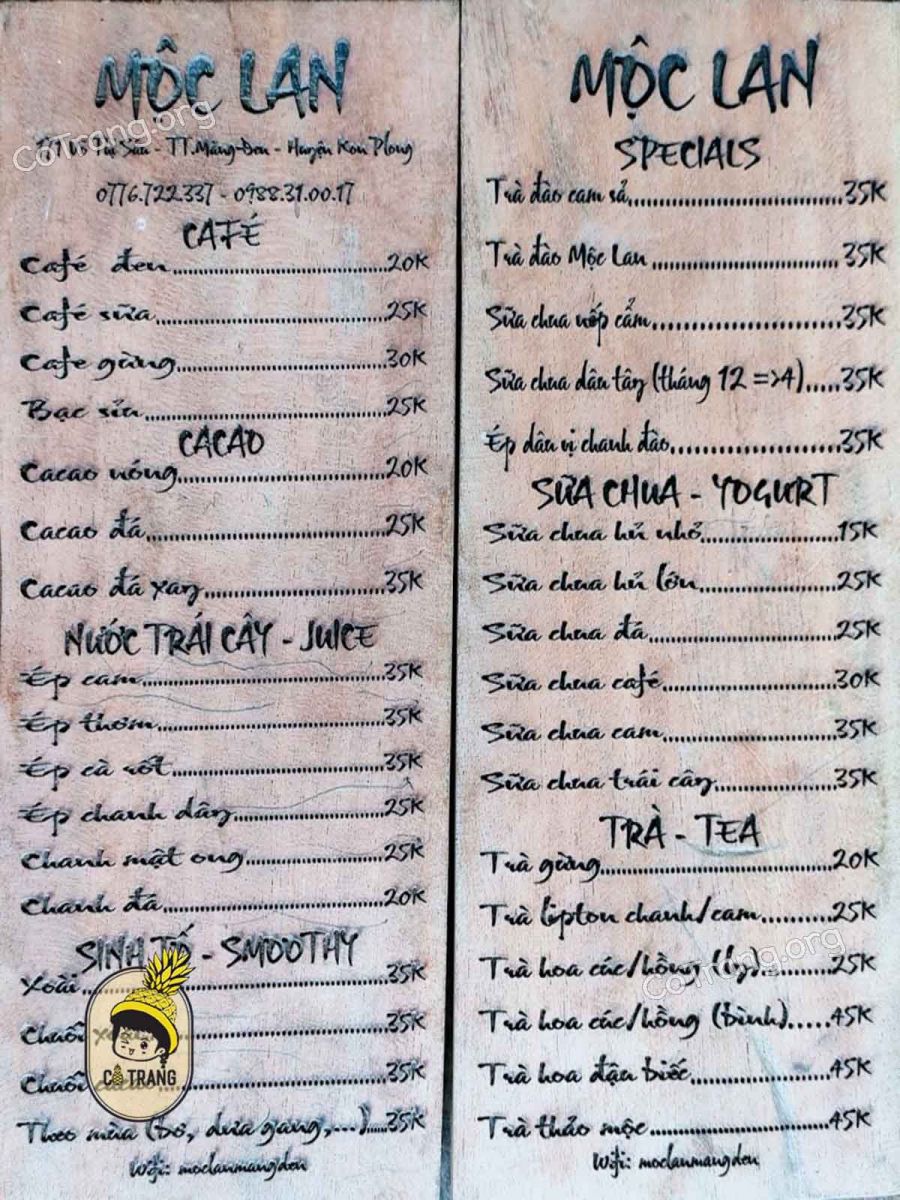 MỘC LAN
Thị Sáu - TT.Măng-Đen - Huyện Kon Plong
0776.722.337 - 0988.31.00.17
CAFÉ
Café đen 20K
Café sữa 25K
Cafe gừng 30K
Bạc sỉu 25K
CACAO
Cacao nóng 20K
Cacao đá 25K
Cacao đá xay 35K
NƯỚC TRÁI CÂY - JUICE
Ép cam 35K
Ép thơm 35K
Ép cà rốt 35K
Ép chanh dây 25K
Chanh mật ong 25K
Chanh đá 20K
SINH TỐ - SMOOTHY
Xoài 35K
Chuối 35K
Chuối 35K
Theo mùa (bơ, dưa gang,...) 35K
Wifi: moclanmangden
CÔ TRANG
CoTrang.org
MỘC LAN
SPECIALS
Trà đào cam sả 35K
Trà đào Mộc Lan 35K
Sữa chua nếp cẩm 35K
Sữa chua dâu tây (tháng 12 =>4) 35K
Ép dâu vị chanh đào 35K
SỮA CHUA - YOGURT
Sữa chua hủ nhỏ 15K
Sữa chua hủ lớn 25K
Sữa chua đá 25K
Sữa chua café 30K
Sữa chua cam 35K
Sữa chua trái cây 35K
TRÀ - TEA
Trà gừng 20K
Trà lipton chanh/cam 25K
Trà hoa cúc/hồng (ly) 25K
Trà hoa cúc/hồng (bình) 45K
Trà hoa đậu biếc 45K
Trà thảo mộc 45K
Wifi: moclanmangden
CoTrang.org